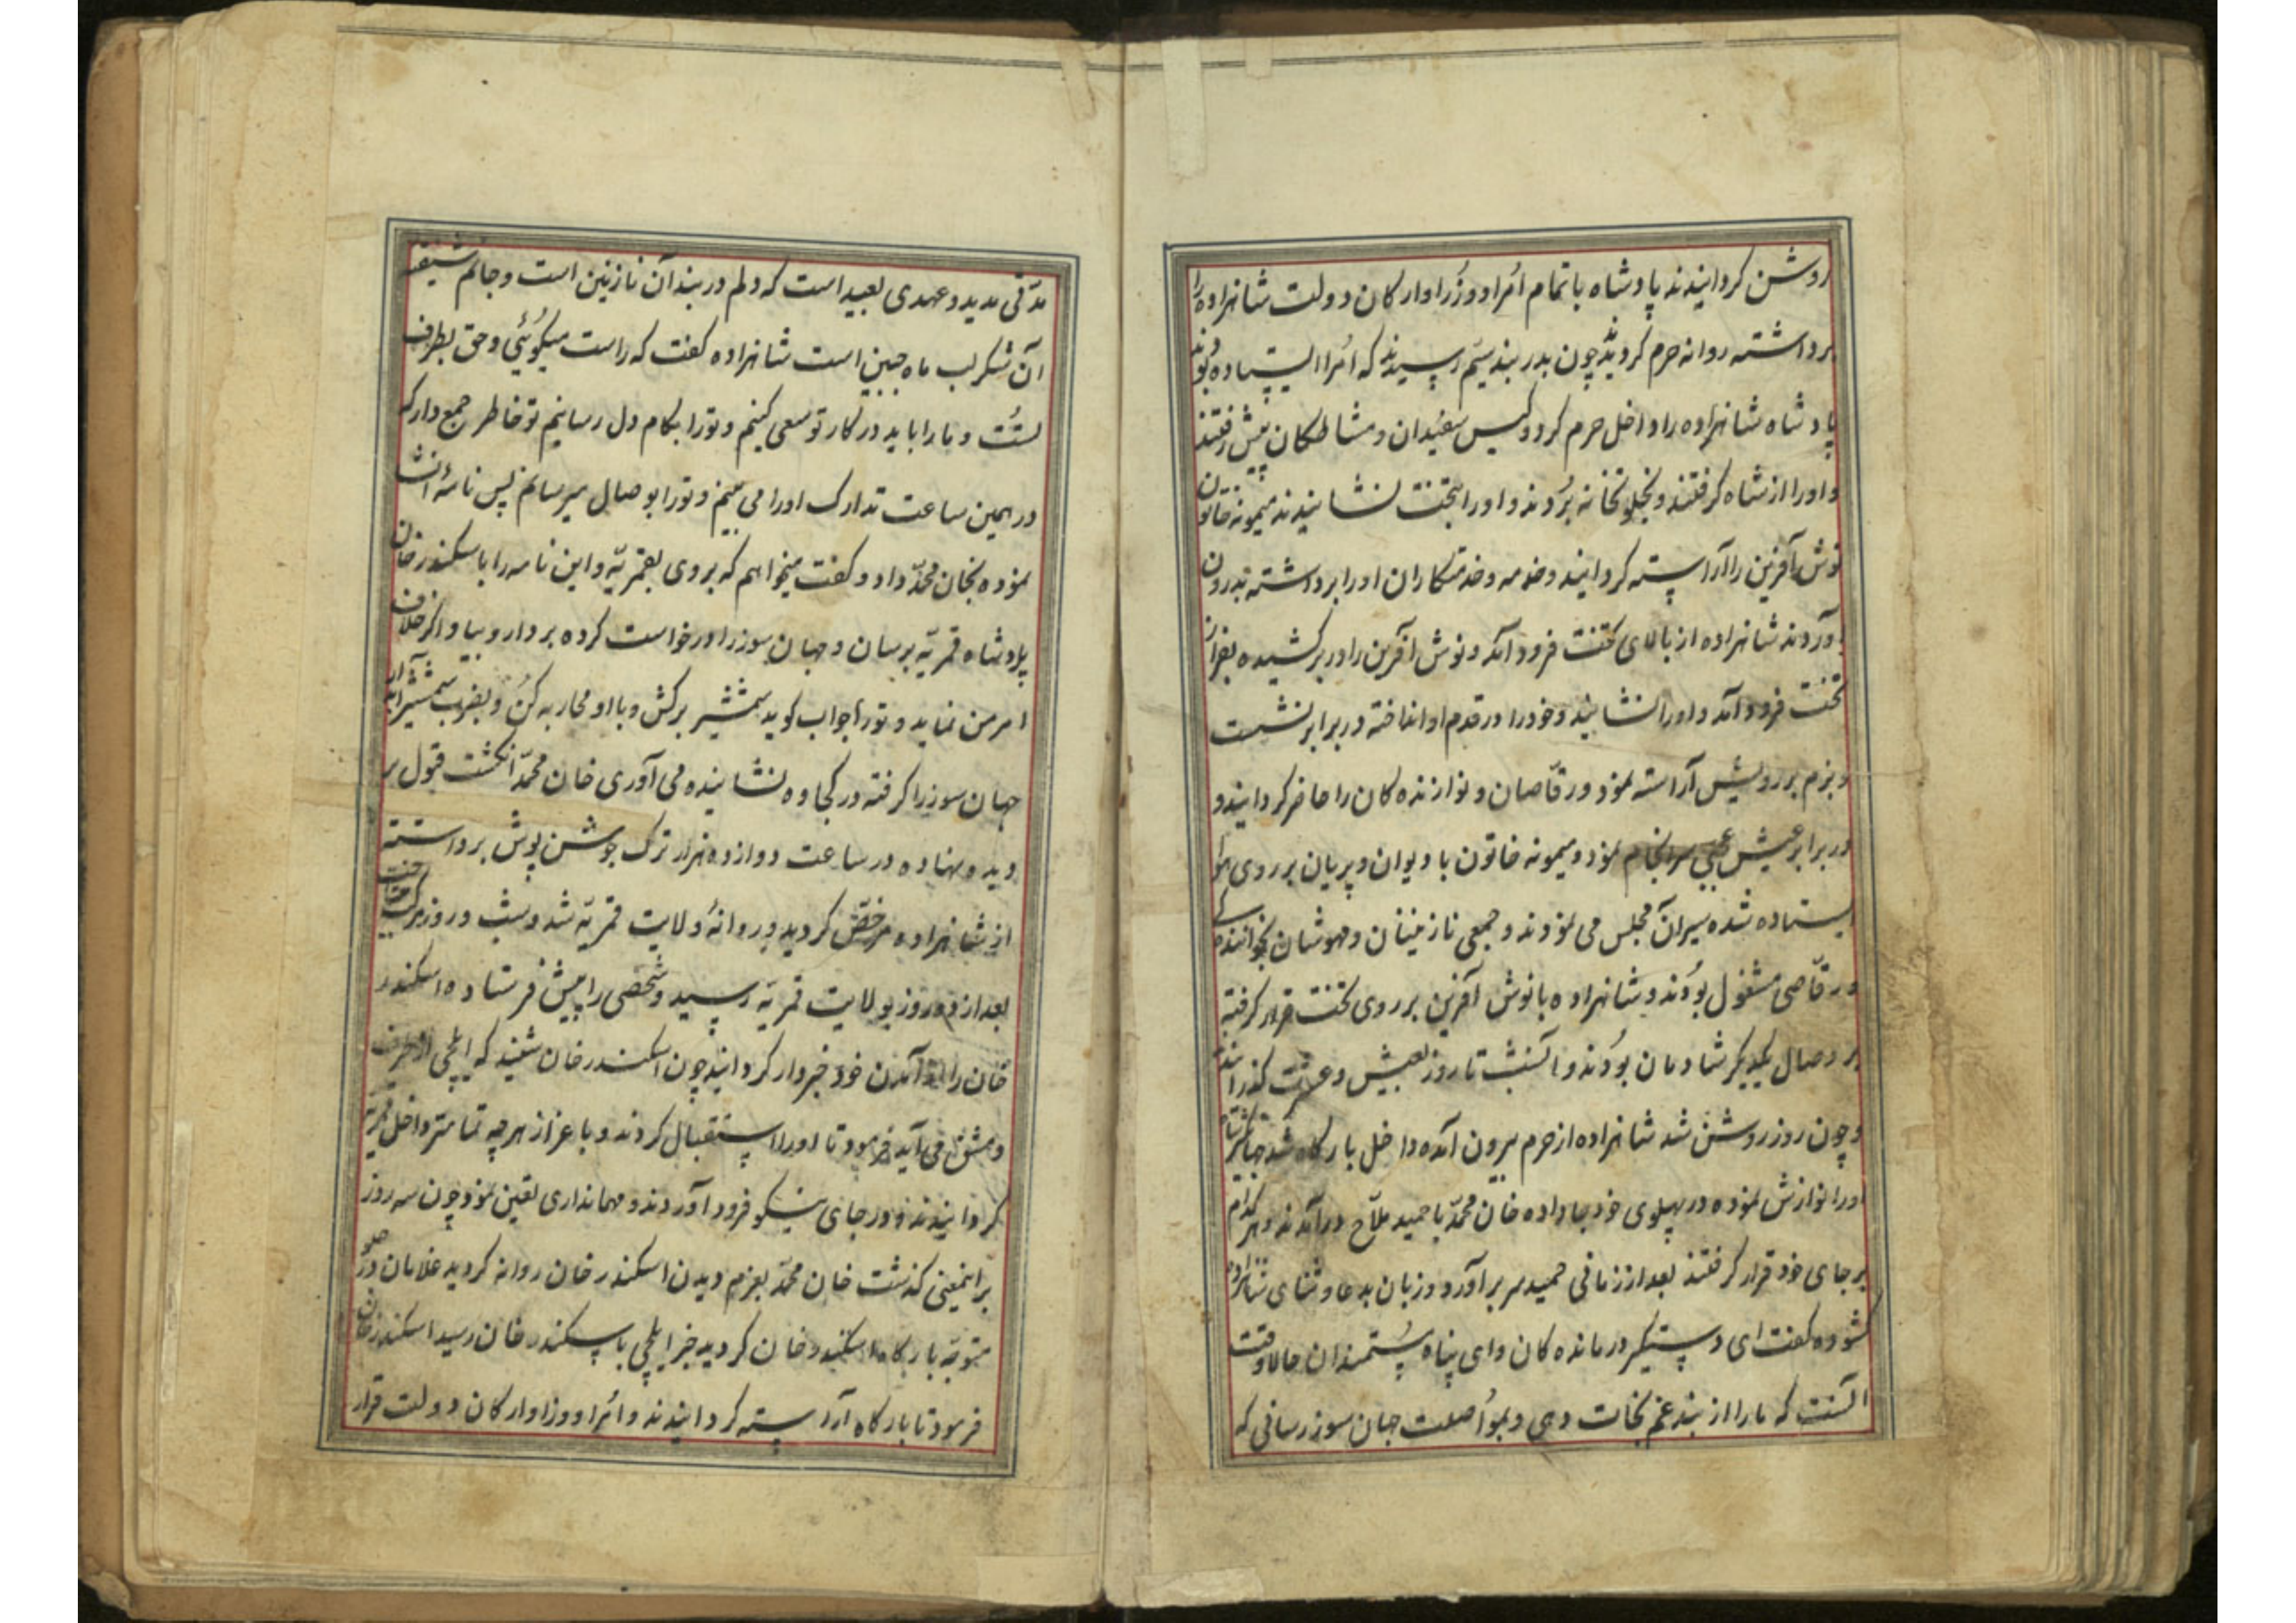 روشن کردانیدند پادشاه با تمام اُمرا و وُزرا و ارکان دولت شاهزاده را
برداشته روانه حرم کردیدند چون بدربند سیّم رسیدند که اُمرا ایستاده بودند
پادشاه شاهزاده را داخل حرم کرد و کیس سفیدان و مشاطکان پیش رفتند
و او را از شاه کرفتند و بخلوتخانه بُردند و او را بتخت نشانیدند میمونه خاتون
نوش آفرین را آراسته کردانید و خدمه و خدمتکاران او را برداشته بدرون
آوردند شاهزاده از بالای تخت فرود آمد و نوش آفرین را در بر کشیده بفراز
تخت فرود آمد و او را نشانید و خود را در قدم او انداخته در برابر نشست
و بزم بر رویش آراسته نمود و رقّاصان و نوازنده کان را حاضر کردانید و
در برابر عیش عجبی سرانجام نمود و میمونه خاتون با دیوان و پریان بر روی هوا
ایستاده شده سیر آن مجلس می نمودند و جمعی نازنینان و مهوشان بخوانندکی
و رقّاصی مشغول بُودند و شاهزاده با نوش آفرین بر روی تخت قرار کرفته
بر وصال یکدیکر شادمان بُودند و آنشب تا روز بعیش و عشرت کذرانیدند
و چون روز روشن شد شاهزاده از حرم بیرون آمده داخل بارکاه شد جهانکیر شاه
او را نوازش نموده در پهلوی خود جا داده خان محمّد با حمید ملّاح درآمدند و هر کدام
بر جای خود قرار کرفتند بعد از زمانی حمید سر برآورد و زبان بدعا و ثنای شاهزاده
کشوده کفت ای دستیکر درمانده کان و ای پناه مُستمندان حالا وقت
آنست که مارا از بند غم نجات دهی و بمُواصلت جهان سوز رسانی که
مدّتی مدید و عهدی بعید است که دلم در بند آن نازنین است و جانم شیفته
آن شکر لب ماه جبین است شاهزاده کفت که راست میکوُئی و حق بطرف
تُست و ما را باید در کار تو سعی کنیم و تو را بکام دل رسانیم تو خاطر جمع دار که
در همین ساعت تدارک او را می بینم و تو را بوصال میرسانم پس نامهٔ انشا
نموده بخان محمّد داد و کفت میخواهم که بروی بقمریّه و این نامه را با سکندر خان
پادشاه قمریّه برسان و جهان سوز را درخواست کرده بردار و بیا و اکر خلاف
امر من نماید و تو را جواب کوید شمشیر برکش و با او محاربه کنُ و بضرب شمشیر آبدار
جهان سوز را کرفته در کجاوه نشانیده می آوری خان محمّد انکشت قبول بر
دیده نهاده در ساعت دوازده هزار ترک جوشن پوش برداشته
از شاهزاده مرخّص کردید و روانهٔ ولایت قمریّه شد و شب و روز مرکب
بعد از ده روز بولایت قمریّه رسید و شخصی را پیش فرستاده اسکندر
خان را از آمدن خود خبردار کردانید چون اسکندر خان شنید که ایلچی از طرف
دمشق می آید فرمود تا او را استقبال کردند و با عزاز هر چه تمامتر داخل قمریّه
کردانیدند و در جای نیکو فرود آوردند و مهمانداری تعین نمود چون سه روز
براینمعنی کذشت خان محمّد بعزم دیدن اسکندر خان روانه کردید غلامان در جلو
متوجّه بارکاه اسکندر خان کردید خبر ایلچی با سکندر خان رسید اسکندر خان
فرمود تا بارکاه آراسته کردانیدند و اُمرا و وزرا و ارکان دولت قرار